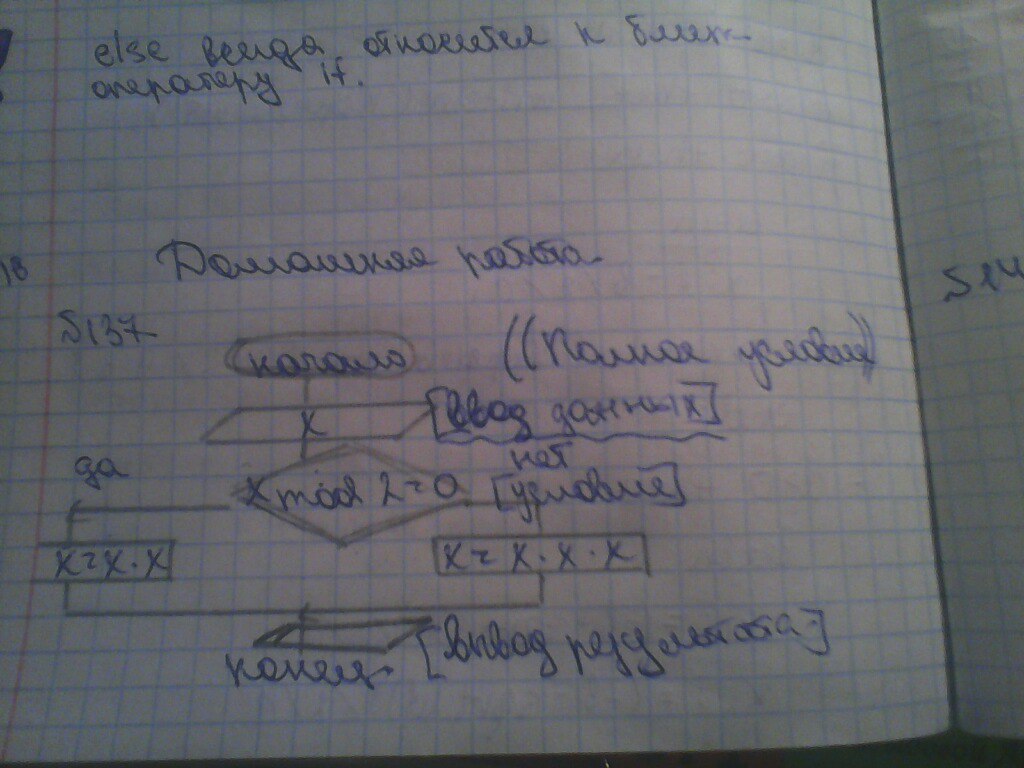 else всегда относится к ближ-
оператору if.
18
Домашняя работа
S137
S14
начало
((Полное условие))
x
[Ввод данных]
да
нет
x mod 2=0
[условие]
x=x·x
x=x·x·x
[Вывод результата]
конец